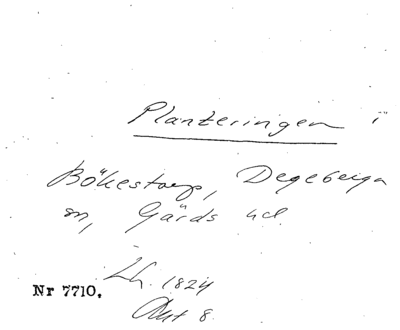 Planteringen i
Bökestorp, Degeberga
sn, Gärds hd.
Lh. 1824
Nr 7710.
Akt 8.